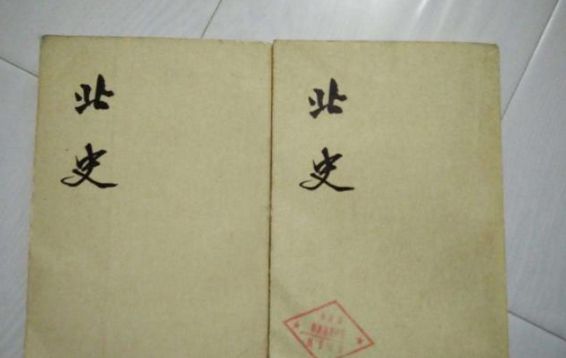 北史
北史